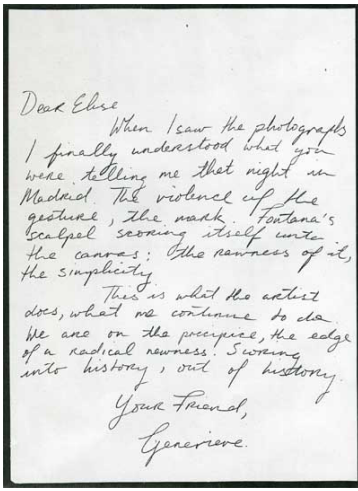 Dear Elise
When I saw the photographs
I finally understood what you
were telling me that night in
Madrid. The violence of the
gesture, the mark. Fontana's
scalpel scoring itself unto
the canvas; the rawness of it,
the simplicity
This is what the artist
does, what we continue to do.
We are on the precipice, the edge
of a radical newness. Scoring
into history, out of history.
Your Friend,
Genevieve.